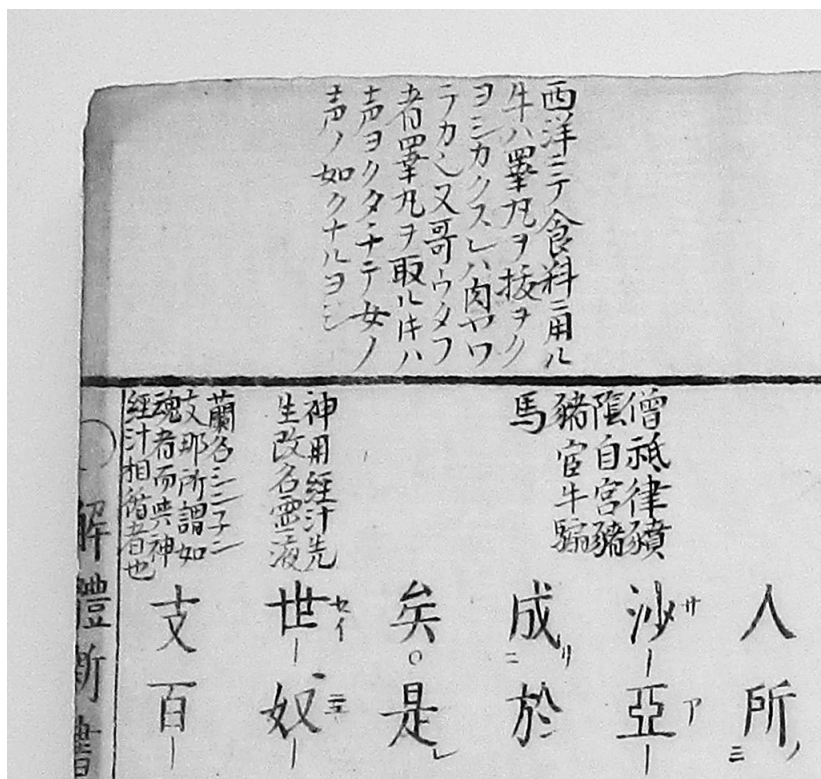 西洋ニテ食料ニ用ル
牛ハ睾丸ヲ抜ヲク
ヨシカクスレハ肉ヤワ
ラカシ又哥ウタフ
者睾丸ヲ取ルキハ
声ヨクタチテ女ノ
声ノ如クナルヨシ
僧祗律豶
陰自宮豬
豬宦牛騸
馬
神用經汁先
生改名霊液
蘭名シンネニ
支那所謂如
魂者而與神
經汁相循者也
人所ノミ
沙亞サア
成於リニ
矣。是レ
世奴セイニユ
支百
解體新書